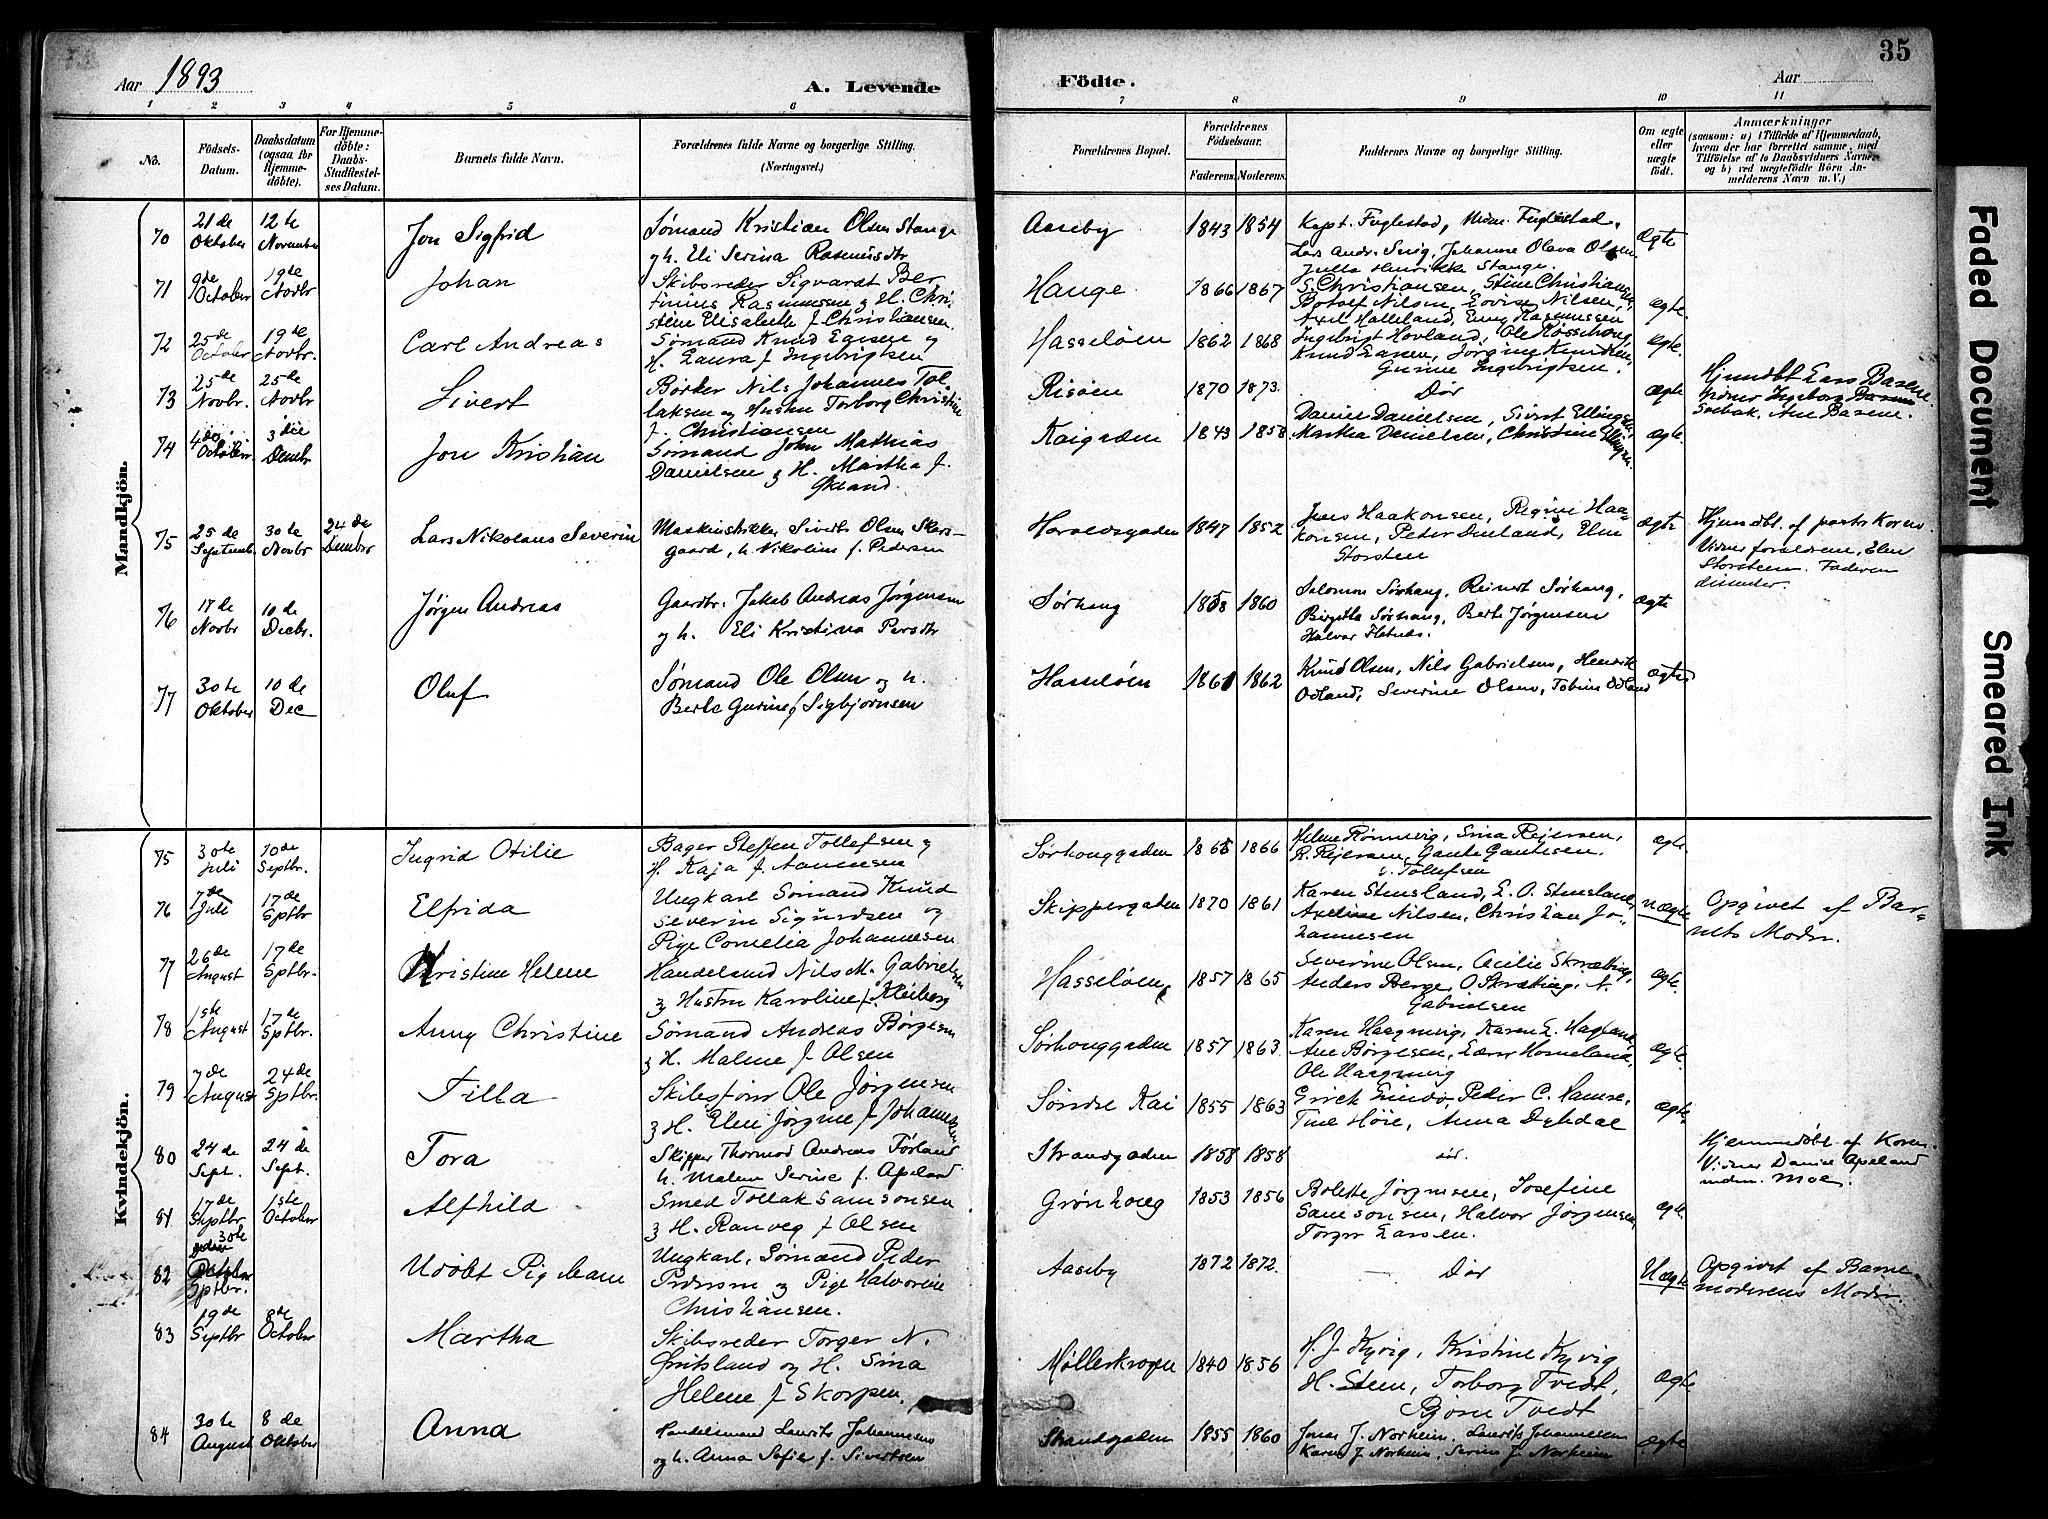 35
Aar 1893
A. Levende
Födte.
Aar
1 2 3 4 5 6 7 8 9 10 11
No.
Födsels-Datum.
Daabsdatum (ogsaa for Hjemme-döbte).
For Hjemme-döbte: Daabs-Stadfæstel-ses Datum.
Barnets fulde Navn.
Forældrenes fulde Navne og borgerlige Stilling. (Næringsvei.)
Forældrenes Bopæl.
Forældrenes Födselsaar.
Faderens. Moderens.
Faddernes Navne og borgerlige Stilling.
Om ægte eller uægte födt.
Anmærkninger
(saasom: a) i Tilfælde af Hjemmedaab,
hvem der har forrettet samme, med
Tilföielse af to Daabsvidners Navne
og b) ved uægtefödte Börn An-
melderens Navn m. V.)
Mandkjön.
70 21 de Oktober 12 te November Jon Sigfrid
Sømand Kristian Olsen Stange
og h. Eli Serina Rasmusdtr
Aaseby 1843 1854
Kapt. Fuglestad, Mdm. Fuglestad,
Lars Andr. Snig, Johanne Olava Olsen
Julla Henrikke Stange.
Ægte
71 9de October 19de Novbr Johan
Skibsreder Sigvardt Ber
tinius Rasmussen & H. Chri
stine Elisabeth f. Christiansen.
Hauge 1866 1867
S. Christiansen, Stine Christiansen,
Botolf Nilsen, Lovise Nilsen,
Axel Halleland, Emy Rasmussen
ægte.
72 25de October 19de Novbr. Carl Andreas
Sømand Knud Larsen og
H. Laura f Ingebrigtsen
Hasseløen 1862 1868
Ingebrigt Hovland, Ole Røsseboug,
Knud Larsen, Jørgine Knudsen,
Gurine Ingebrigtsen.
ægte.
73 25de Novbr. 25de Novbr Sivert
Bødker Nils Johannes Tol
laksen og Hustru Torborg Christine
f. Christiansen
Risøen 1870 1873.
Dør
ægte
Hjemdbt Lars Basene.
Vidner Ingeborg
Solbak, Ane Basene.
74 4de October 3die Dcmbr Jon Kristian
Sømand John Mathias
Danielsen & H. Martha f.
Økland.
Kaigaden 1843 1858
Daniel Danielsen, Sivert Ellingsen,
Martha Danielsen, Christine Ellingsen.
ægte.
75 25 de Septemb. 30 te Novbr 24 de Dcmbr Lars Nikolaus Severin
Maskinstikker Sivert Olsen Skers-
gaard, h. Nikoline f. Pedersen
Haraldsgaden 1847 1852
Jens Haakonsen, Regine Haa-
konsen, Peder Dueland, Elen
Storsten
ægte
Hjemdbt. af pastr Koren.
Vidner foraldrene, Elen
Storsteen. Faderen
dissenter.
76 17 de Novbr 10 de Decbr. Jørgen Andreas
Gaardbr. Jakob Andreas Jørgensen
og h. Eli Kristina Persdtr
Sørhaug 1858 1860
Salomon Sørhaug, Reinert Sørhaug,
Birgitha Sørhaug, Berte Jørgensen
Halvor Flotnes.
ægte
77 30 te Oktober 10 de Dec Oluf
Sømand Ole Olsen og h.
Berte Gurine f Sigbjørnsen
Hasseløen 1861 1862
Knud Olsen, Nils Gabrielsen, Henrik
Odland, Severine Olsen, Tobine Odland
ægte
Kvindekjön.
75 30te Juli 10de Septbr. Ingrid Otilie
Bager Steffen Tollefsen &
H. Kaja f. Aanensen
Sørhouggaden 1865 1866
Helene Rønnevig, Sina Rejersen,
R. Rejersen, Gante Gantesen.
Tollefsen
ægte.
76 7de Juli 17de Sptbr Elfrida
Ungkarl Sømand Knud
Severin Sigurdsen og
Pige Cornelia Johannesen
Skippergaden 1870 1861
Karen Stensland, E. O. Stensland,
Axeline Nilsen, Christian Jo-
hannesen
uægte
Opgivet af Bar-
nets Moder.
77 26de August 17de Sptbr. Kristine Helene
Handelsmd Nils M. Gabrielsen
& Hustru Karoline f. Kleiberg
Hasseløen 1857 1865
Severine Olsen, Cecilie Skrætting,
Anders Berge, O. Skrætting, N.
Gabrielsen
ægte.
78 1ste August 17de Sptbr. Anny Christine
Sømand Andreas Børgesen
& H. Malene f Olsen
Sørhouggaden 1857 1863.
Karen Haagensvig, Karen E. Hagland,
Ane Børgesen, Edvin Hovneland,
Ole Haagensvig
ægte.
79 7de August 24de Sptbr. Tilla
Skibstømr Ole Jørgensen
& H. Elen Jørgine f Johannesen
Søndre Kai 1855 1863
Peder C. Hamre,
Tine Høie, Anna Dybdal
ægte.
80 24 de Sept. 24 de Sept. Tora
Skipper Thormod Andreas Førland
h. Malene Serine f. Apeland
Strandgaden 1858 1858
dør.
Hjemmedøbt af Koren.
Vidner Daniel Apeland
mdm. Moe.
81 17de Sptbr. 1ste October Alfhild
Smed Tollak Samsonsen
& H. Ranveg f Olsen
Grønhaug 1853 1856
Bolette Jørgensen, Josefine
Samsonsen, Halvor Jørgensen,
Torger Larsen.
ægte.
82 30te Sptbr. Udøbt Pigebarn
Ungkarl, Sømand Peder
Pedersen & Pige Halvorine
Christiansen.
Aaseby 1872 1872.
— Dør
Uægte
Opgivet af Barne
moderens Moder.
83 19de Septbr 8de October Martha
Skibsreder Torger N.
Gritsland og H. Sina
Helene f. Skorpen.
Møllerkrogen 1840 1856
H. J. Kyvig, Kristine Kyvig
H. Steen, Torborg Tvedt,
Bjørn Tvedt
ægte
84 30te August 8 de Oktober Anna
Handelsmand Laurits Johannesen
og h. Anna Sofie f. Sivertsen
Strandgaden 1855 1860
Jonas J. Norheim, Laurits Johannessen
Karen J. Norheim, Serine J. Norheim
ægte
Faded Document
Smeared Ink